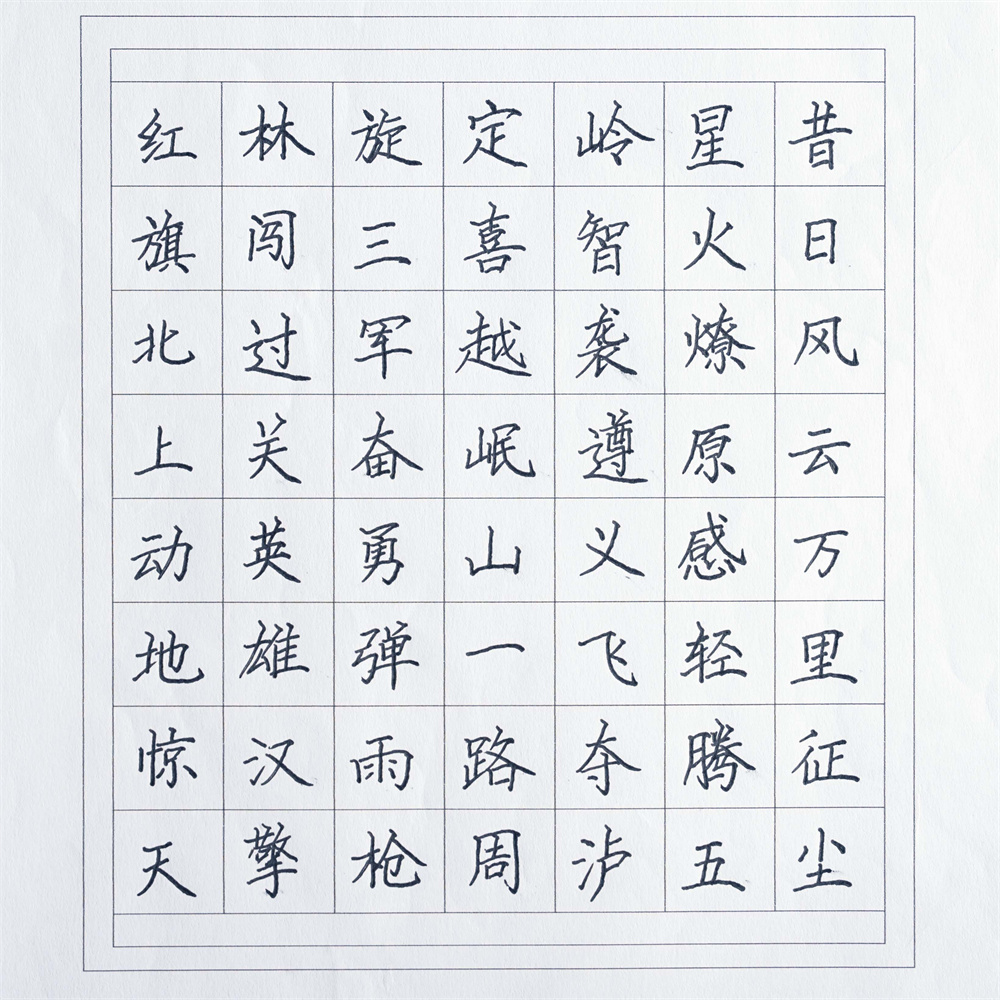 昔日风云万里征尘
星火燎原感轻腾五
岭智袭遵义飞夺泸
定喜越岷山一路周
旋三军奋勇弹雨枪
林闯过关英雄汉擎
红旗北上动地惊天